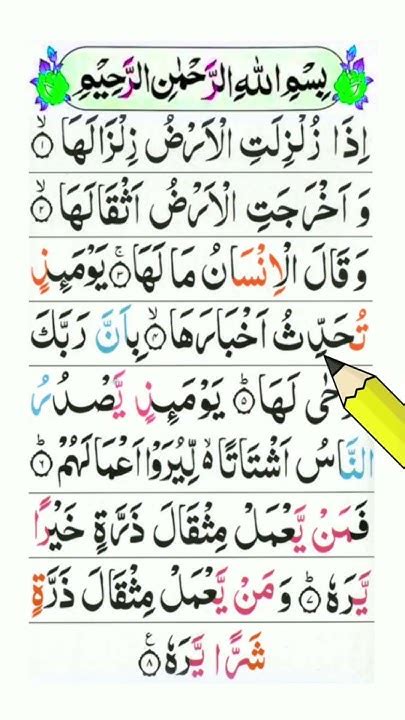 بِسْمِ اللهِ الرَّحْمٰنِ الرَّحِيْمِ
اِذَا زُلْزِلَتِ الْاَرْضُ زِلْزَالَهَا ۙ﴿۱﴾
وَ اَخْرَجَتِ الْاَرْضُ اَثْقَالَهَا ۙ﴿۲﴾
وَقَالَ الْاِنْسَانُ مَا لَهَا ۚ﴿۳﴾ يَوْمَئِذٍ
تُحَدِّثُ اَخْبَارَهَا ۙ﴿۴﴾ بِاَنَّ رَبَّكَ
حٰى لَهَا ؕ﴿۵﴾ يَوْمَئِذٍ يَّصْدُرُ
النَّاسُ اَشْتَاتًا ۙ۬ لِّيُرَوْا اَعْمَالَهُمْ ؕ﴿۶﴾
فَمَنْ يَّعْمَلْ مِثْقَالَ ذَرَّةٍ خَيْرًا
يَّرَهٗ ؕ﴿۷﴾ وَمَنْ يَّعْمَلْ مِثْقَالَ ذَرَّةٍ
شَرًّا يَّرَهٗ ﴿۸﴾ ع